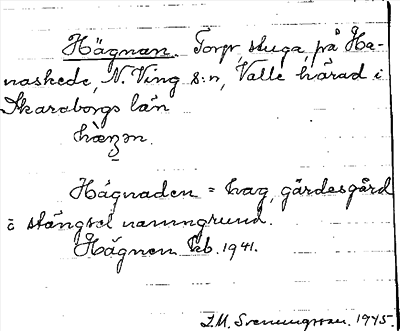 Hägnan. Torp, stuga, på Ha-
naskede, N. Ving s:n, Valle härad i
Skaraborgs län
Hägnaden = hag, gärdesgård
i stängsel namngrund.
Hägnen Ekb. 1941.
I.M. Svenungsson. 1945.